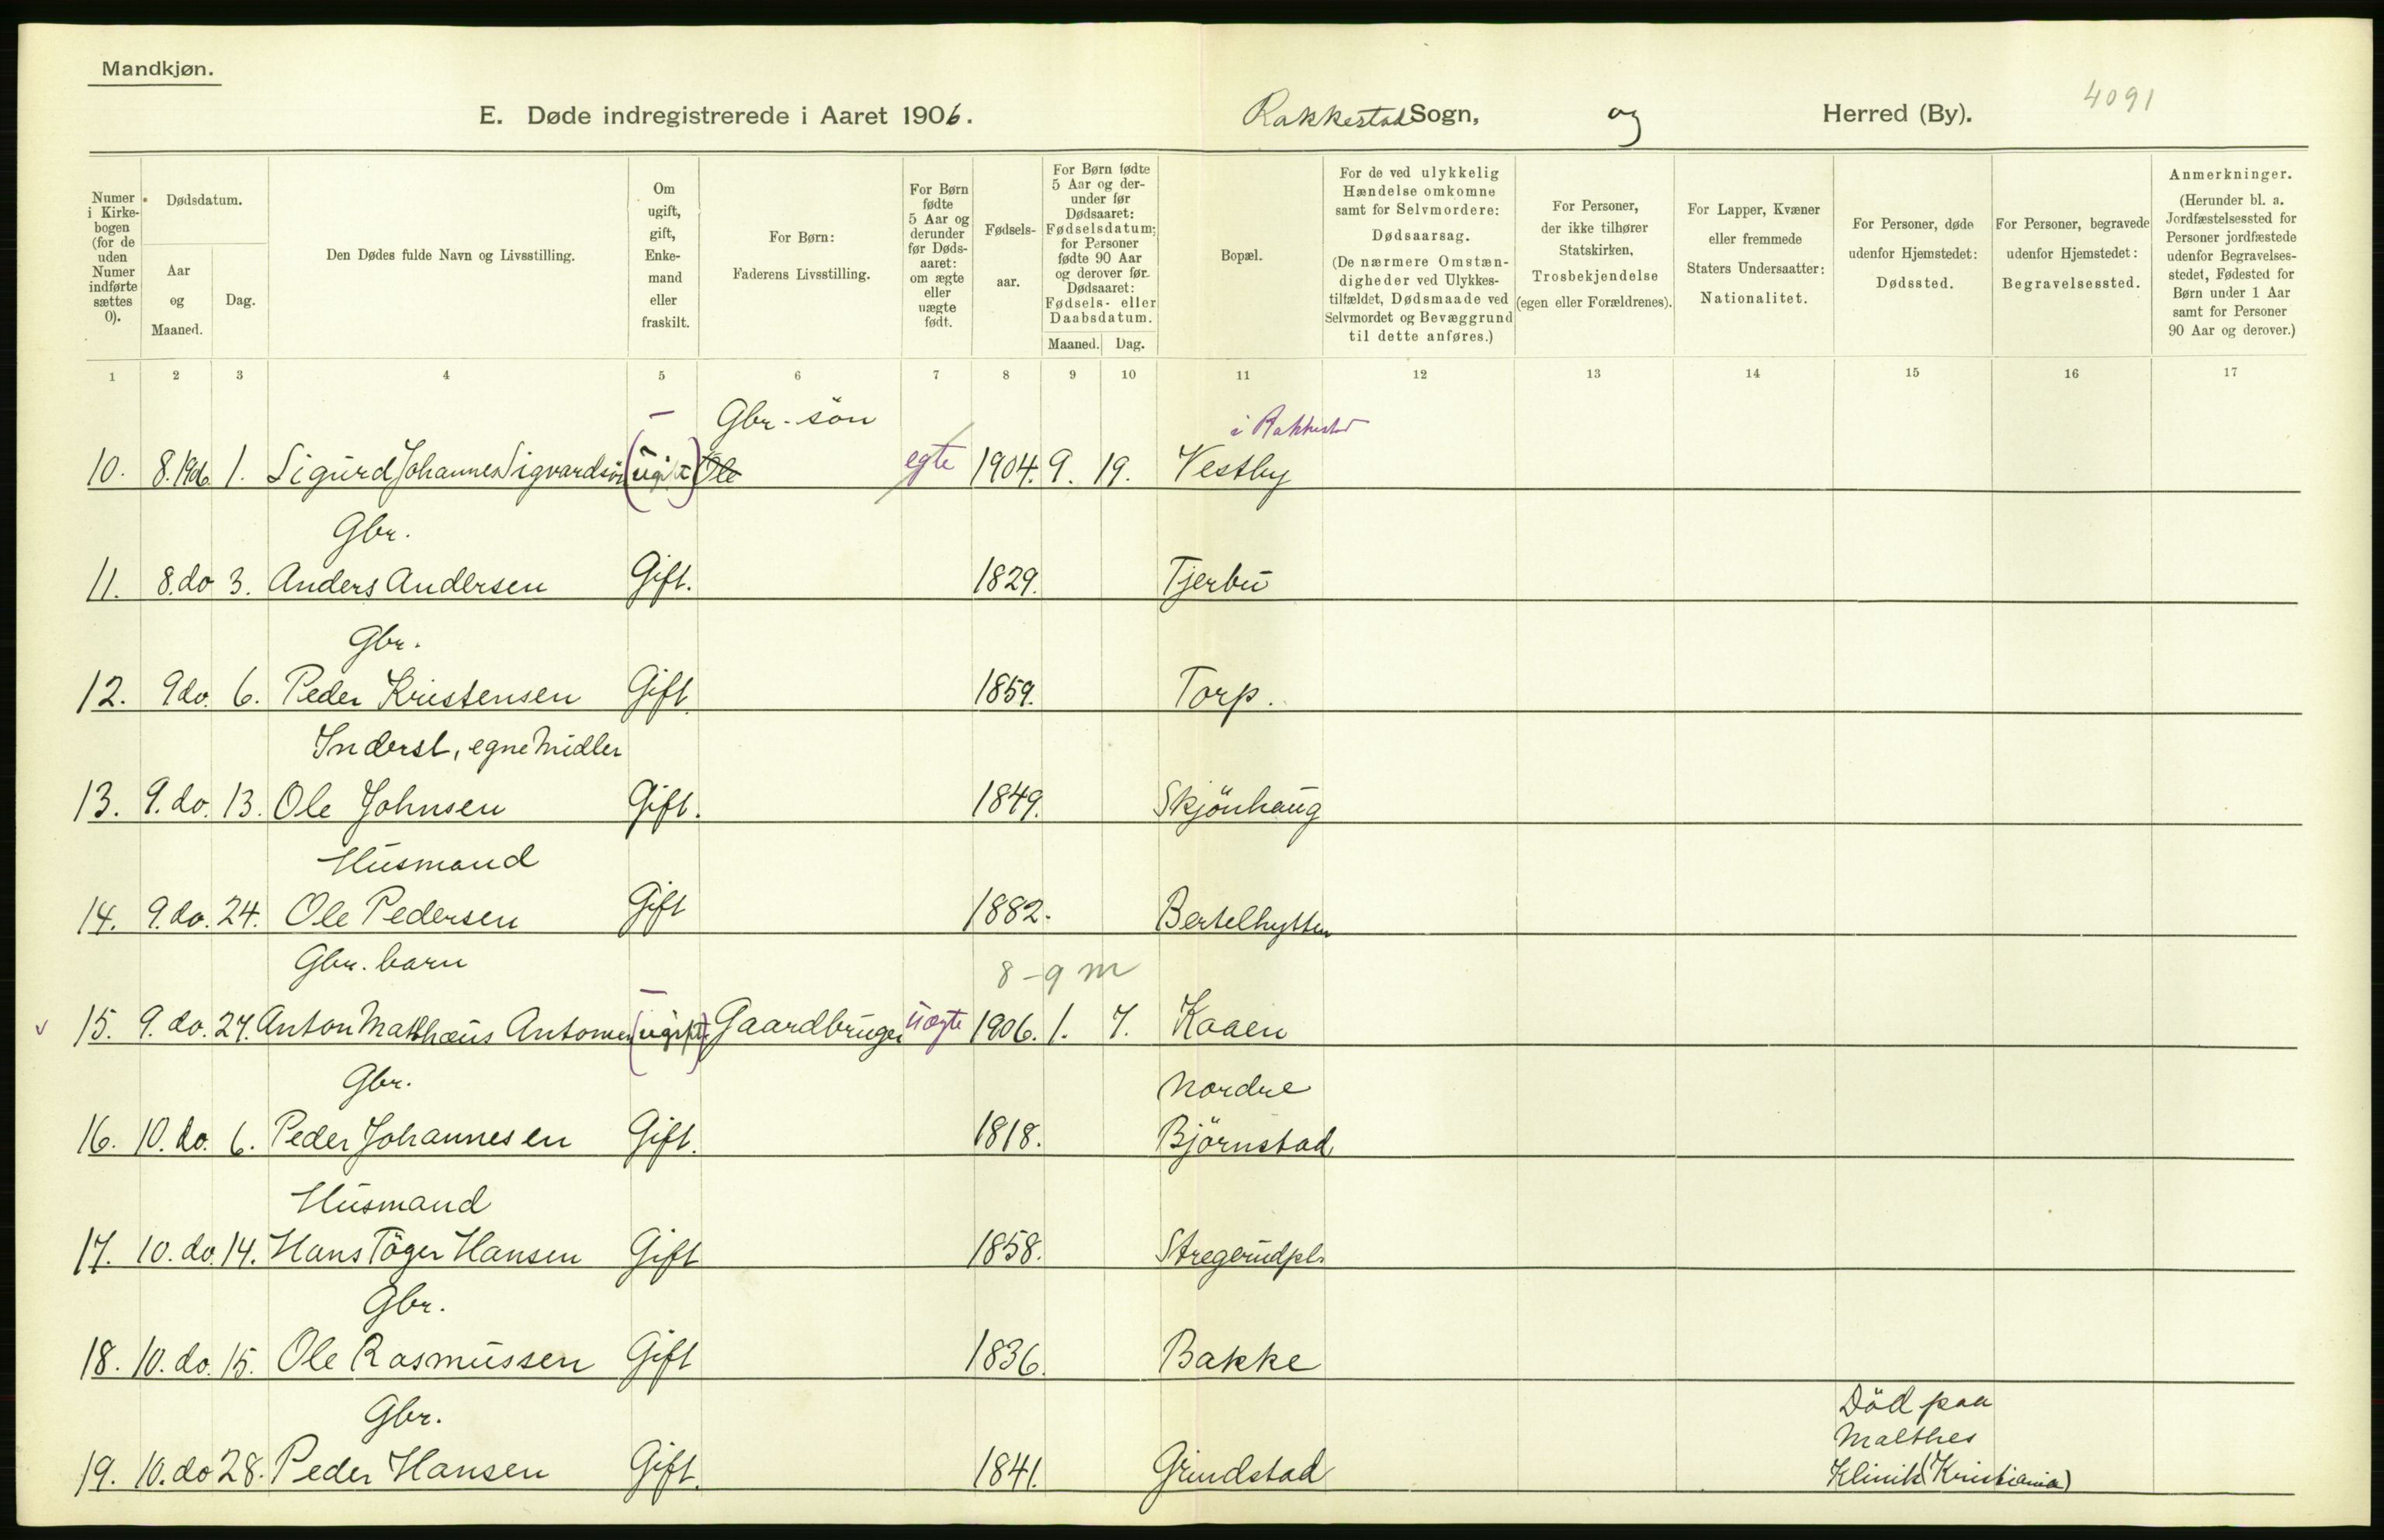 Mandkjøn.
4091
E. Døde indregistrerede i Aaret 1906. Rakkestad Sogn, og Herred (By).
Numer i Kirkebogen (for de uden Numer indførte sættes 0).
Dødsdatum.
Aar og Maaned.
Dag.
Den Dødes fulde Navn og Livsstilling.
Om ugift, gift, Enkemand eller fraskilt.
For Børn: Faderens Livsstilling.
For Børn fødte 5 Aar og derunder før Dødsaaret: om ægte eller uægte født.
Fødselsaar.
For Børn fødte 5 Aar og derunder før Dødsaaret: Fødselsdatum; for Personer fødte 90 Aar og derover før Dødsaaret: Fødsels- eller Daabsdatum.
Maaned. Dag.
Bopæl.
For de ved ulykkelig Hændelse omkomne samt for Selvmordere: Dødsaarsag. (De nærmere Omstændigheder ved Ulykkestilfældet, Dødsmaade ved Selvmordet og Bevæggrund til dette anføres.)
For Personer, der ikke tilhører Statskirken, Trosbekjendelse (egen eller Forældrenes).
For Lapper, Kvæner eller fremmede Staters Undersaatter: Nationalitet.
For Personer, døde udenfor Hjemstedet: Dødssted.
For Personer, begravede udenfor Hjemstedet: Begravelsessted.
Anmerkninger. (Herunder bl. a. Jordfæstelsessted for Personer jordfæstede udenfor Begravelsesstedet, Fødested for Børn under 1 Aar samt for Personer 90 Aar og derover.)
1 2 3 4 5 6 7 8 9 10 11 12 13 14 15 16 17
– Gbr.-søn i Rakkestad
10. 8.1906 1. Sigurd Johannes Sigvardsøn (ugift) Ole egte 1904. 9. 19. Vestby
Gbr.
11. 8.do 3. Anders Andersen Gift. 1829. Tjerbu
Gbr.
12. 9do. 6. Peder Kristensen Gift. 1859. Torp.
Inderst, egne Midler
13. 9.do. 13. Ole Johnsen Gift. 1849. Skjönhaug
Husmand
14. 9.do. 24. Ole Pedersen Gift 1882. Bertelhytten
Gbr. barn 8-9 m
v 15. 9.do. 27. Anton Matthæus Antonsen (ugift). Gaardbruger uægte 1906. 1. 7. Kaaen
Gbr. Nordre
16. 10.do. 6. Peder Johannesen Gift. 1818. Björnstad
Husmand
17. 10.do. 14. Hans Töger Hansen Gift 1858. Stregerudpl.
Gbr.
18. 10.do. 15. Ole Rasmussen Gift 1836. Bakke
Gbr. Död paa
Malthes
19. 10.do 28. Peder Hansen Gift. 1841. Grindstad Klinik (Kristiania)